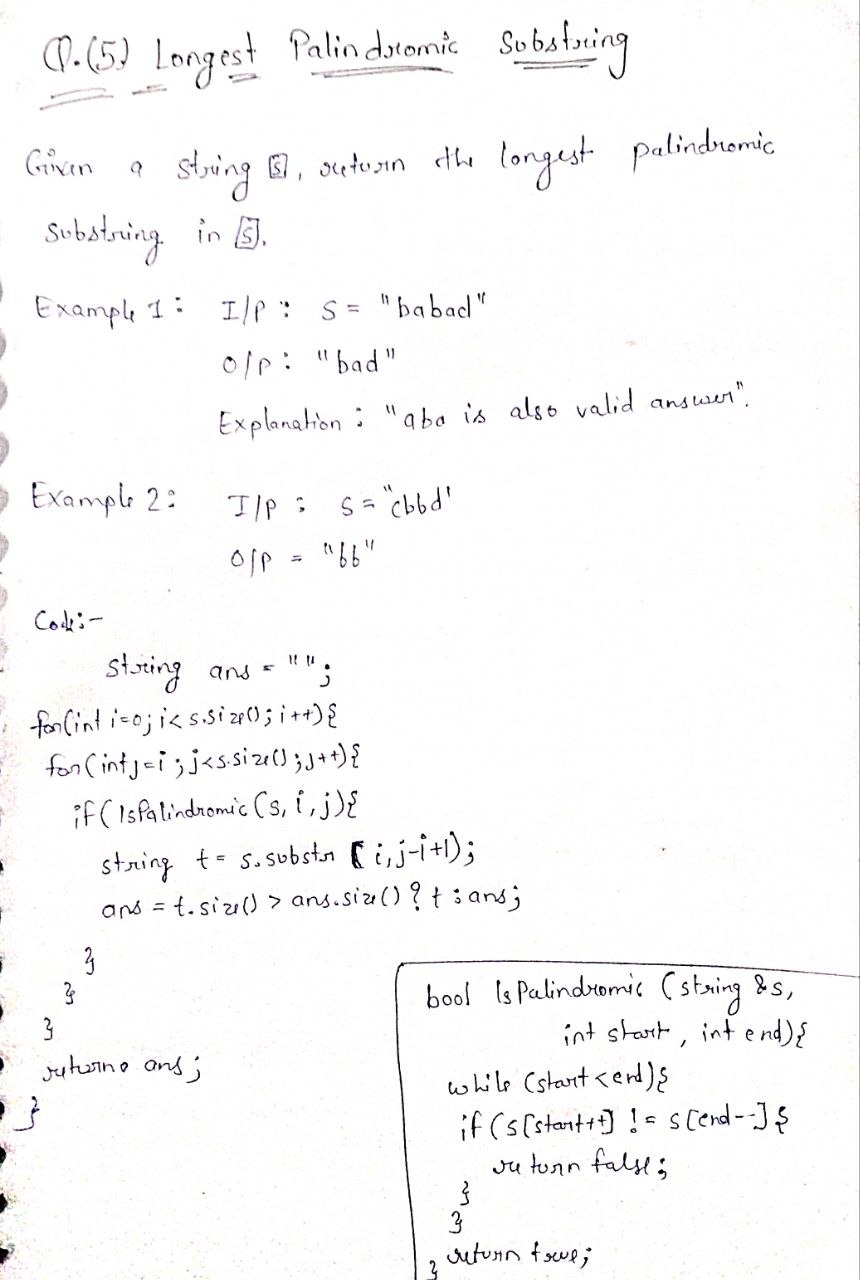 Q.(5) Longest Palindromic Substring
Given a string [s], return the longest palindromic
substring in [s].
Example 1: I/P : s = "babad"
O/P : "bad"
Explanation : "aba is also valid answer".
Example 2: I/P : s = "cbbd'
O/P = "bb"
Code:-
string ans = "";
for(int i=0; i< s.size(); i++){
for(int j=i ; j<s.size(); j++){
if( IsPalindromic (s, i, j){
string t = s.substr ( i, j-i+1);
ans = t.size() > ans.size() ? t : ans;
}
}
}
return ans;
}
bool IsPalindromic (string &s,
int start, int end){
while (start < end){
if (s[start++] != s[end--] {
return false;
}
}
return true;
}